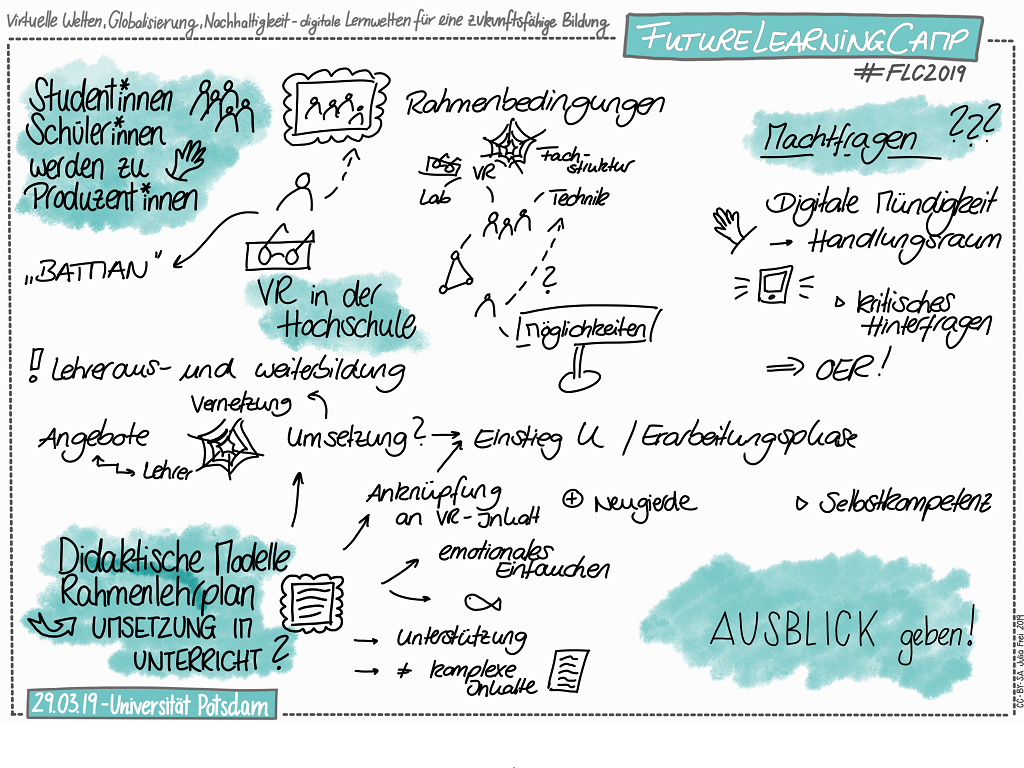 Virtuelle Welten, Globalisierung, Nachhaltigkeit - digitale Lernwelten für eine zukunftsfähige Bildung
FUTURELEARNINGCAMP
#FLC2019
Student*innen
Schüler*innen
werden zu
Produzent*innen
„BATMAN"
VR in der
Hochschule
Rahmenbedingungen
VR
Fach-
struktur
Lab
Technik
?
Möglichkeiten
Machtfragen ???
Digitale Mündigkeit
→ Handlungsraum
▷ kritisches
Hinterfragen
⇒ OER!
! Lehreraus- und weiterbildung
Vernetzung
Angebote
Lehrer
Umsetzung? → Einstieg U / Erarbeitungsphase
Anknüpfung
an VR-Inhalt
⊕ Neugierde
▷ Selbstkompetenz
emotionales
Eintauchen
→ unterstützung
→ ≠ komplexe
Inhalte
Didaktische Modelle
Rahmenlehrplan
UMSETZUNG IM
UNTERRICHT?
AUSBLICK geben!
29.03.19 - Universität Potsdam
CC-BY-SA Julia Frei 2019